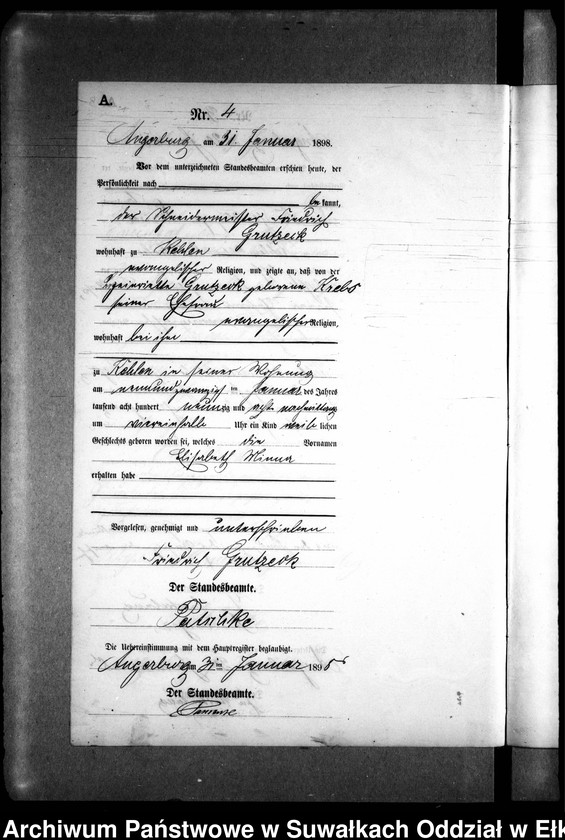 A.
Nr. 4
Angerburg am 31. Januar 1898.
Vor dem unterzeichneten Standesbeamten erschien heute, der
Persönlichkeit nach
be kannt,
der Schneidermeister Friedrich
Grutzeck
wohnhaft zu Kehlen
evangelischer Religion, und zeigte an, daß von der
Henriette Grutzeck geborene Krebs
seiner Ehefrau
evangelischer Religion,
wohnhaft bei ihm
zu Kehlen in seiner Wohnung
am neunundzwanzigsten Januar des Jahres
tausend acht hundert neunzig und acht nachmittags
um viereinhalb Uhr ein Kind weib lichen
Geschlechts geboren worden sei, welches die Vornamen
Elisabeth Minna
erhalten habe
Vorgelesen, genehmigt und unterschrieben
Friedrich Grutzeck
Der Standesbeamte.
Die Uebereinstimmung mit dem Hauptregister beglaubigt.
Angerburg am 31. Januar 1898
Der Standesbeamte.
Archiwum Państwowe w Suwałkach Oddział w Ełk